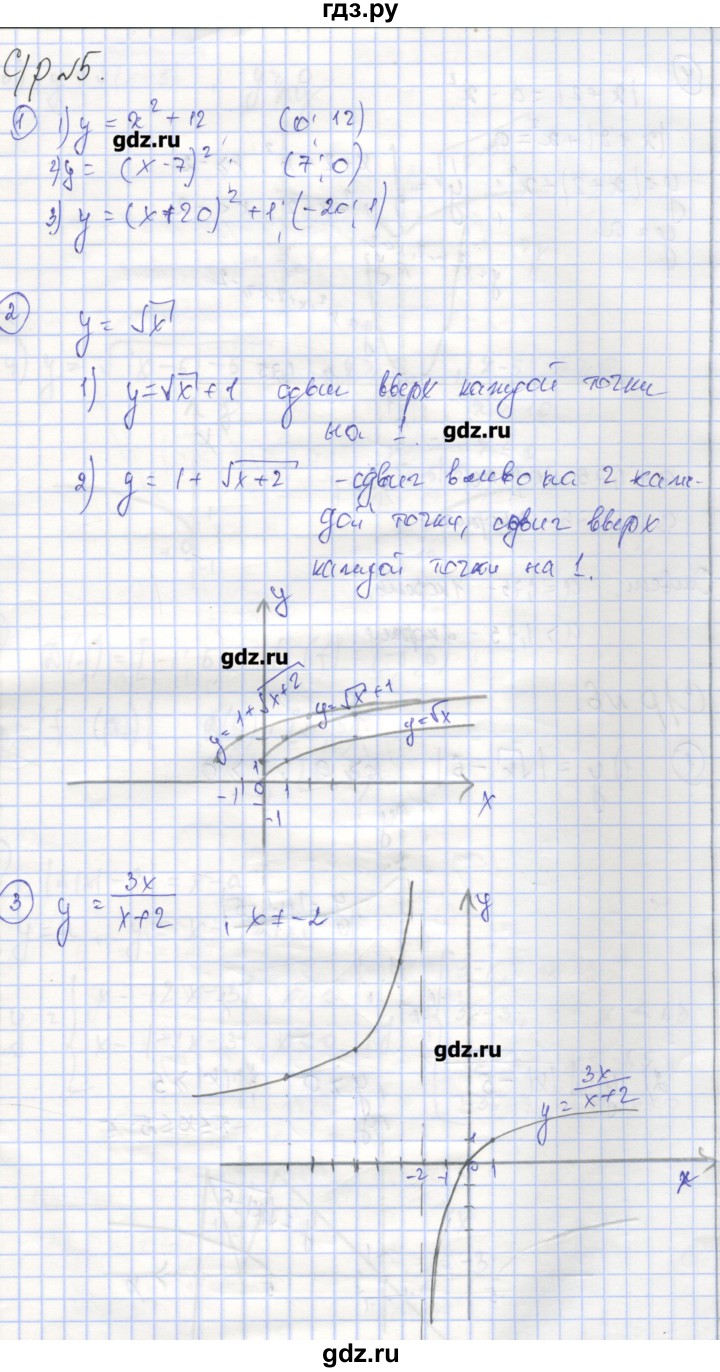 гдз.ру
С/р №5.
① 1) y = x² + 12 (0; 12)
gdz.ru
2) y = (x-7)²; (7; 0)
3) y = (x+20)² + 1; (-20; 1)
② y = √x
1) y = √x + 1 сдвиг вверх каждой точки
на 1.
gdz.ru
2) y = 1 + √x+2 - сдвиг влево на 2 каж-
дой точки, сдвиг вверх
каждой точки на 1.
y
gdz.ru
y = 1 + √x+2
y = √x + 1
y = √x
1
-1 0 1
x
-1
③ y = 3x/x+2, x ≠ -2
y
gdz.ru
y = 3x/x+2
1
-2 -1 0 1
x
gdz.ru